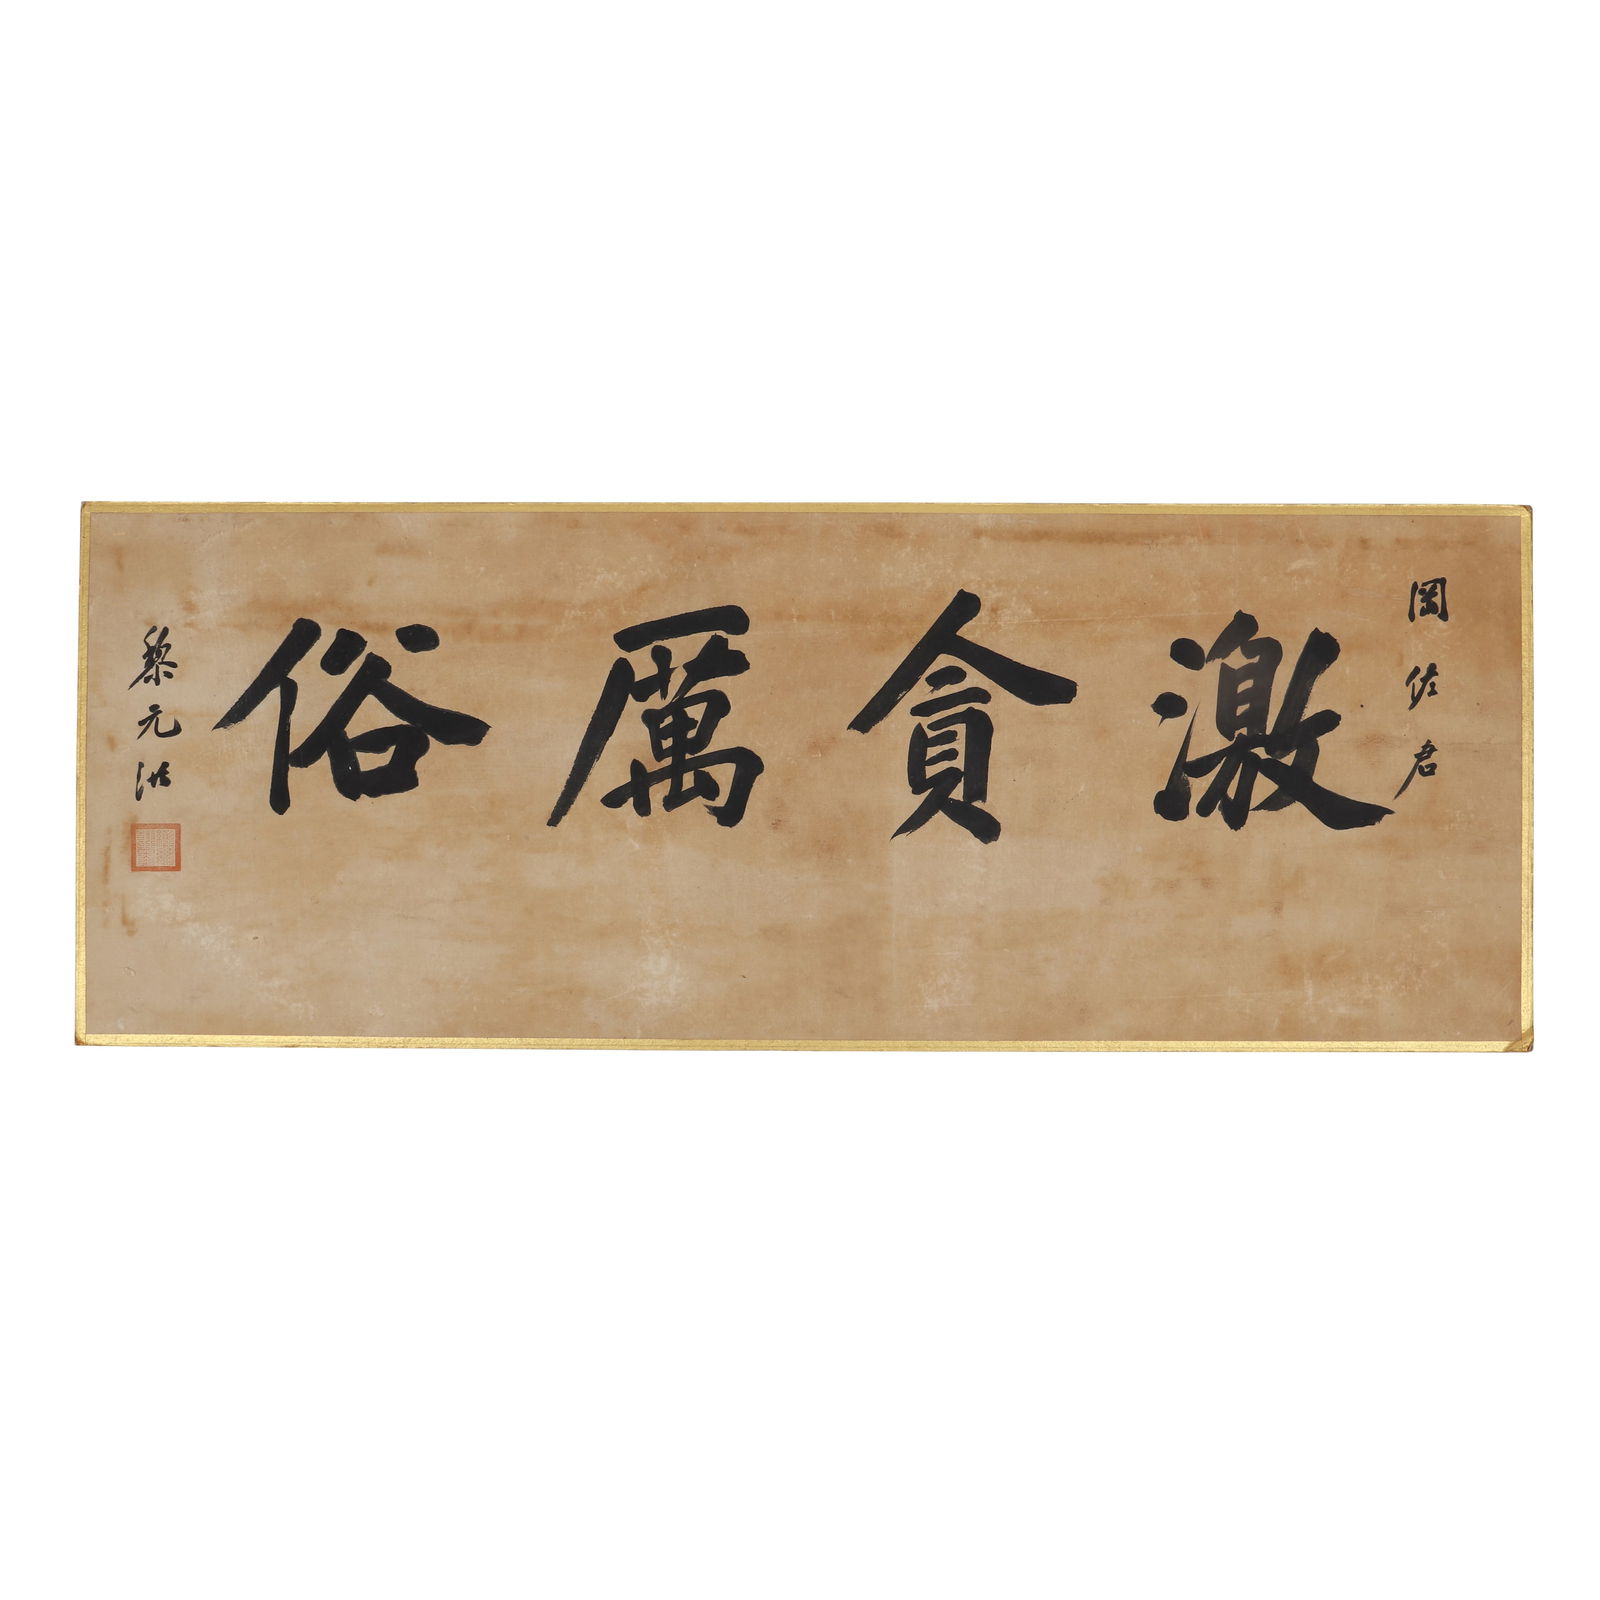 岡佐君
激貪厲俗
黎元洪